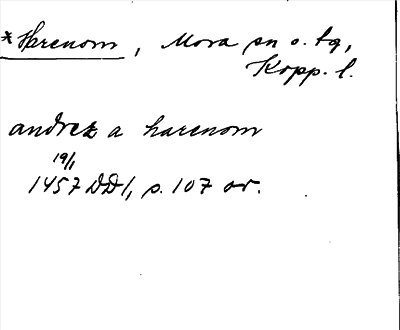 *Harenom, Mora sn o. tg,
Kopp. l.
andrez a harenom
19/1
1457 DD1, s. 107 or.